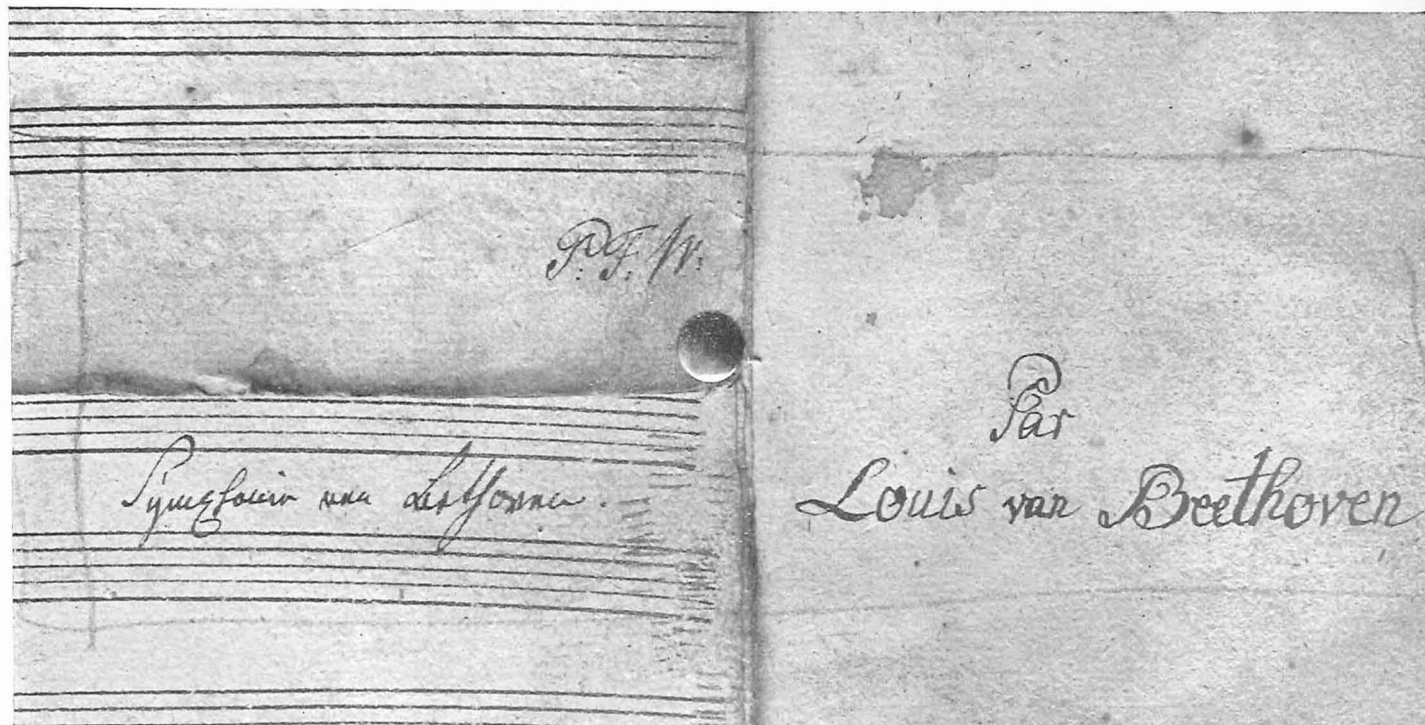 P. F. W.
Symphonie von Bethoven.
Par
Louis van Beethoven